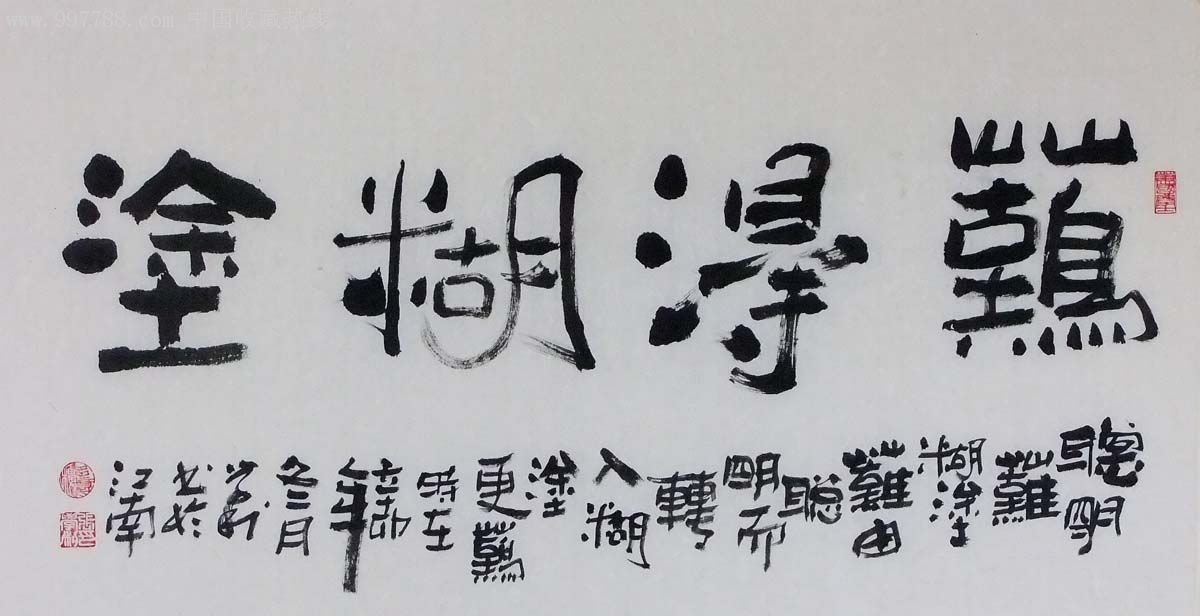 www.997788.com 中国收藏热线
難得糊塗
聰明
難
糊塗
難由
聰
明而
轉
入糊
塗
更難
時在
辛卯
年
冬月
書於
江南